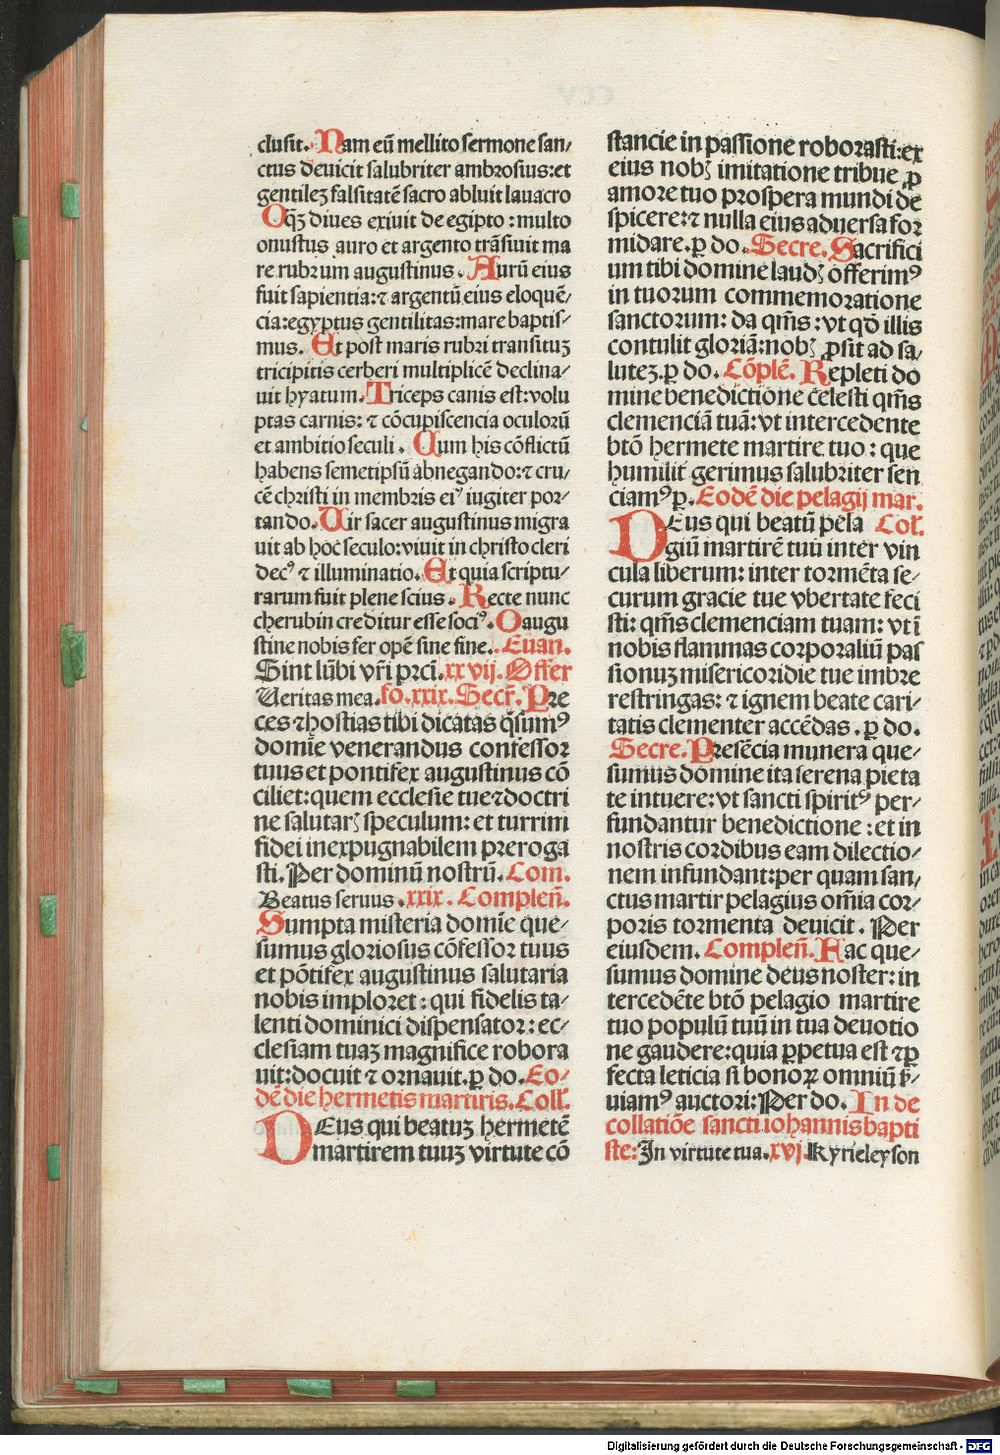 clusit. Nam eū mellito sermone san/
ctus deuicit salubriter ambrosius: et
gentileʒ falsitatē sacro abluit lauacro
Oq̄ʒ diues exiuit de egipto: multo
onustus auro et argento trāsiuit ma
re rubrum augustinus. Aurū eius
fuit sapientia: ⁊ argentū eius eloquē/
cia: egyptus gentilitas: mare baptis/
mus. Et post maris rubri transituʒ
tricipitis cerberi multiplicē declina/
uit hyatum. Triceps canis est: volu
ptas carnis: ⁊ cōcupiscencia oculorū
et ambitio seculi. Cum his cōflictū
habens semetipsū abnegando: ⁊ cru/
cē christi in membris eiꝰ iugiter por/
tando. Uir sacer augustinus migra
uit ab hoc seculo: viuit in christo cleri
decꝰ ⁊ illuminatio. Et quia scriptu/
rarum fuit plene scius. Recte nunc
cherubin creditur esse sociꝰ. O augu
stine nobis fer opē sine fine. Euan.
Sint lūbi vr̄i prcī. xxvij. Offer
Ueritas mea. fo. xxix. Secr̄. Pre
ces ⁊ hostias tibi dicatas q̄sumꝰ
domīe venerandus confessor
tuus et pontifex augustinus cō
ciliet: quem ecclesie tue ⁊ doctri
ne salutarꝫ speculum: et turrim
fidei inexpugnabilem preroga
sti. Per dominū nostrū. Com.
Beatus seruus. xxix. Compleñ.
Sumpta misteria domīe que/
sumus gloriosus cōfessor tuus
et pōtifex augustinus salutaria
nobis imploret: qui fidelis ta/
lenti dominici dispensator: ec/
clesiam tuaʒ magnifice robora
uit: docuit ⁊ ornauit. ꝑ do. Eo/
dē die hermetis martiris. Coll̄.
DEus qui beatuʒ hermetē
martirem tuuʒ virtute cō
stancie in passione roborasti: ex
eius nobꝫ imitatione tribue ꝓ
amore tuo prospera mundi de
spicere: ⁊ nulla eius aduersa for
midare. ꝑ do. Secre. Sacrifici
um tibi domine laudꝫ offerimꝰ
in tuorum commemoratione
sanctorum: da qm̄s: vt qd̄ illis
contulit gloriā: nobꝫ ꝓsit ad sa/
luteʒ. ꝑ do. Cōplē. Repleti do
mine benedictione celesti qm̄s
clemenciā tuā: vt intercedente
btō hermete martire tuo: que
humilit̄ gerimus salubriter sen
ciamꝰ ꝑ. Eodē die pelagij mar.
DEus qui beatū pela Col̄.
giū martirē tuū inter vin
cula liberum: inter tormēta se/
curum gracie tue vbertate feci
sti: qm̄s clemenciam tuam: vt ī
nobis flammas corporaliū pas
sionuʒ misericordie tue imbre
restringas: ⁊ ignem beate cari/
tatis clementer accēdas. ꝑ do.
Secre. Presēcia munera que/
sumus domine ita serena pieta
te intuere: vt sancti spiritꝰ per/
fundantur benedictione: et in
nostris cordibus eam dilectio/
nem infundant: per quam san/
ctus martir pelagius om̄ia cor/
poris tormenta deuicit. Per
eiusdem. Compleñ. Hac que/
sumus domine deus noster: in
tercedēte btō pelagio martire
tuo populū tuū in tua deuotio
ne gaudere: quia ꝑpetua est ⁊ ꝑ
fecta leticia si bonoꝝ omniū ß/
uiamꝰ auctori: Per do. In de
collatiōe sancti iohannis bapti
ste: In virtute tua. xvj. Kyrieleyson
Digitalisierung gefördert durch die Deutsche Forschungsgemeinschaft - DFG